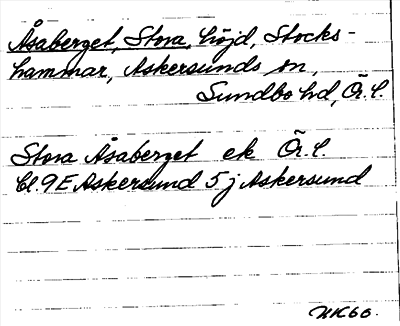 Åsaberget, Stora, höjd, Stocks-
hammar, Askersunds sn,
Sundbo hd, Ör. l.
Stora Åsaberget ek Ör. l.
Bl. 9E Askersund 5 j Askersund